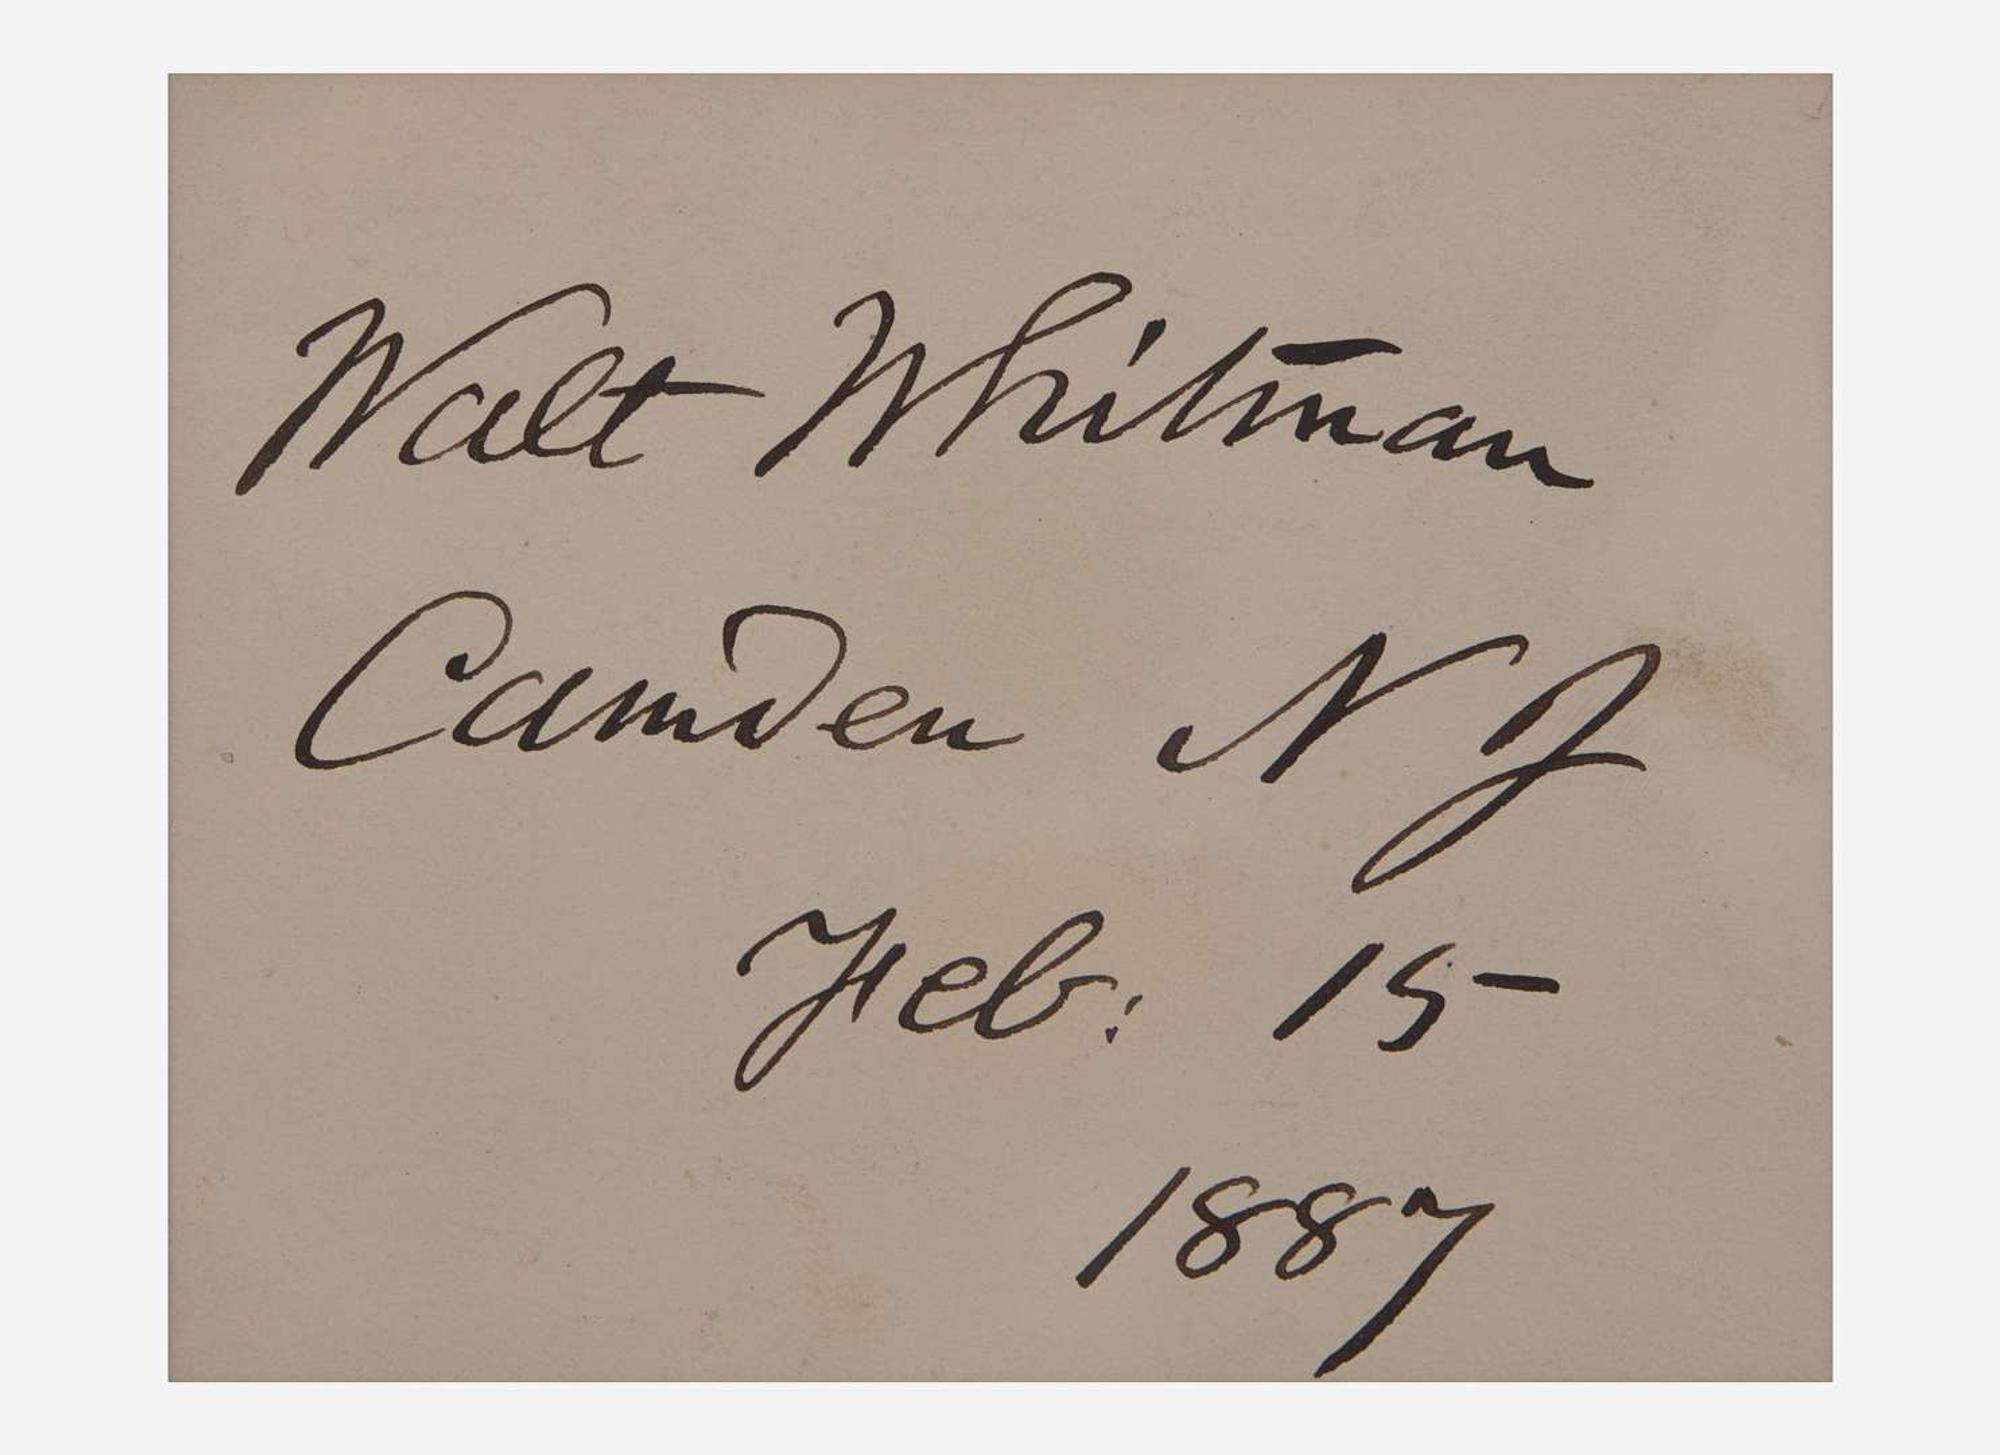 Walt Whitman
Camden N J
Feb: 15
1887